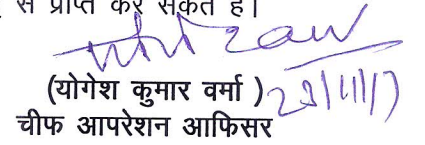 से प्राप्त कर सकते है।
(योगेश कुमार वर्मा )
चीफ आपरेशन आफिसर